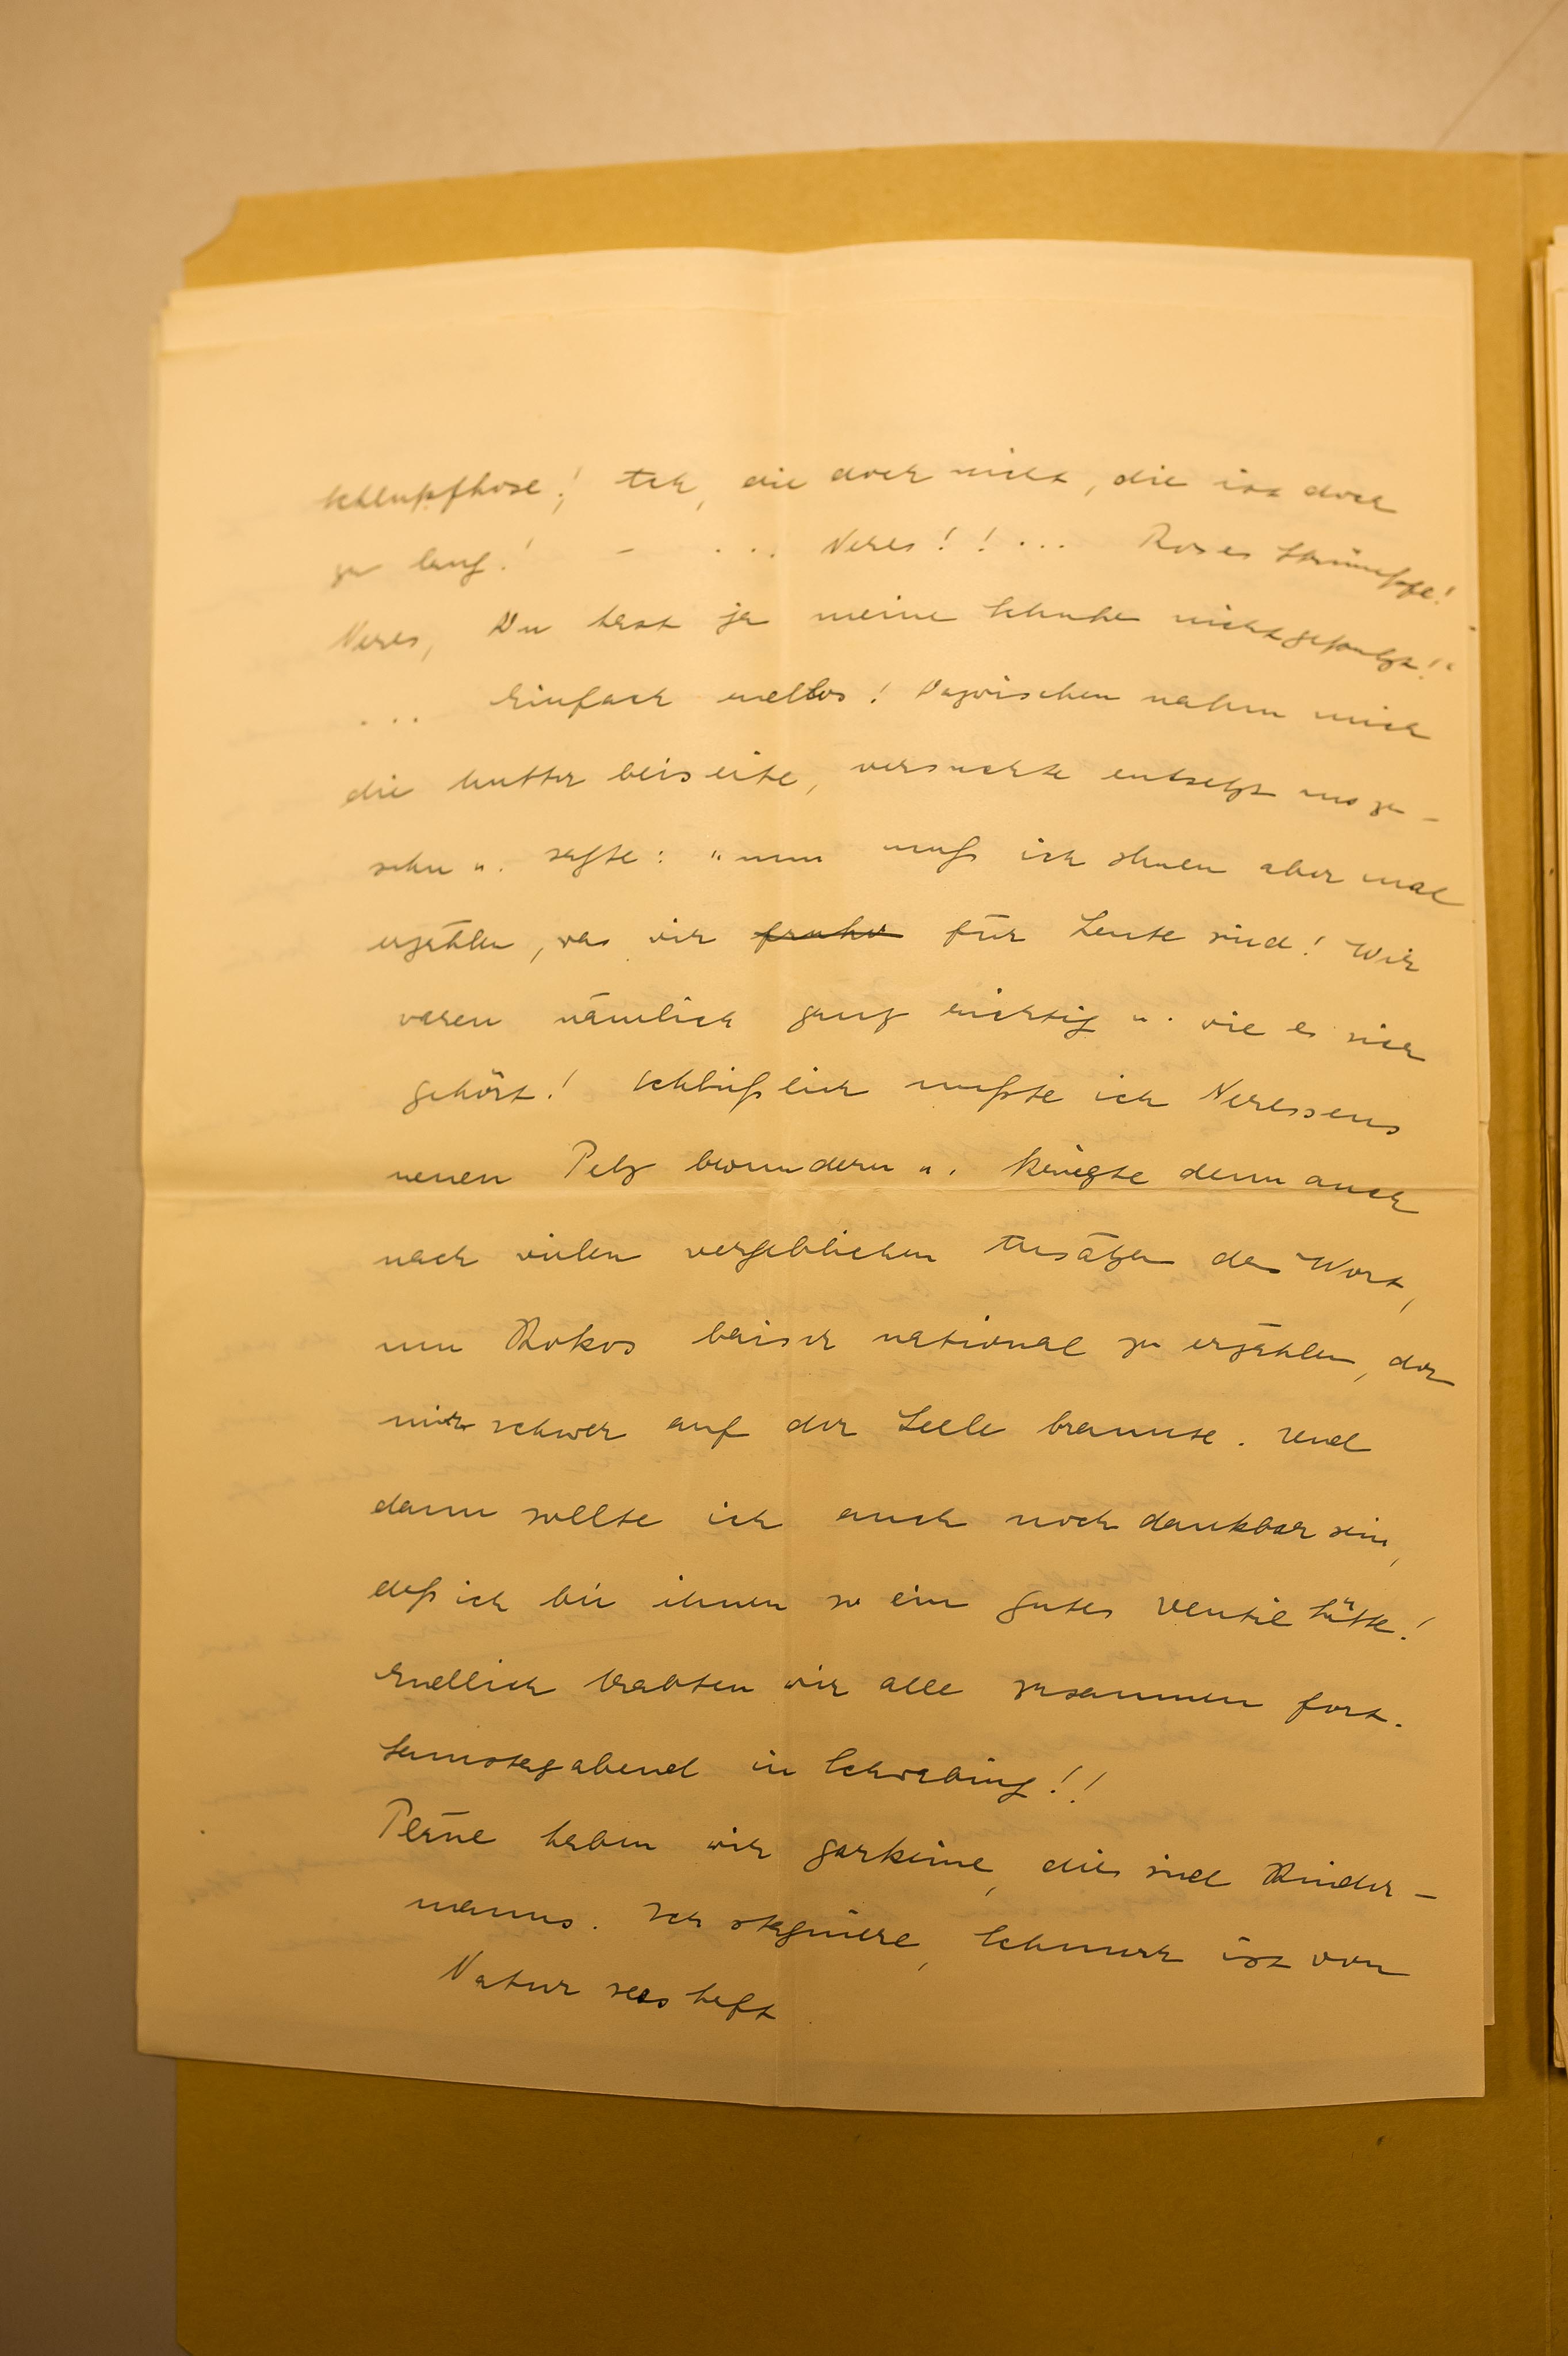 Schlupfhose! Ach, die doch nicht, die ist doch
zu lang! – ... Veres!! ... Rosas Strümpfe!
Veres, Du hast ja meine Schuhe nicht geputzt!"
... Einfach endlos! Dazwischen nahm mich
die Mutter beiseite, versuchte entsetzt auszu-
sehn u. sagte: "nun muß ich Ihnen aber mal
erzählen, was wir früher für Leute sind! Wir
waren nämlich ganz richtig u. wie es sich
gehört! Schließlich mußte ich Veressens
neuen Pelz bewundern u. kriegte denn auch
nach vielen vergeblichen Ansätzen das Wort,
um Kokos baiser national zu erzählen, der
mir schwer auf der Seele brannte. Und
dann sollte ich auch noch dankbar sein,
daß ich bei ihnen so ein gutes Ventil hätte!
Endlich trabten wir alle zusammen fort.
Samstagabend in Schwabing!!
Pläne haben wir garkeine, dies sind Kinder-
manns. Ich stagniere, Schnurr ist von
Natur seßhaft